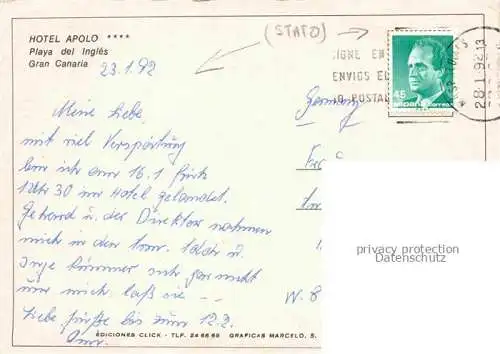 HOTEL APOLO ****
Playa del Inglés
Gran Canaria
23.1.92
(STATO)
IGNE EN
ENVIOS EL
O POSTAL
45
ESPAÑA correos
28-1 92-13
Germany
Meine Liebe,
mit viel Verspätung
bin ich am 16.1 früh
1 Uhr 30 im Hotel gelandet.
Gerhard u. der Direktor nahmen
mich in den Arm. u.
Inge kümmert sich gar nicht
um mich, laß sie --
Liebe Grüße bis zum 12.2.
W. 8
privacy protection
Datenschutz
EDICIONES CLICK - TLF. 24 66 68 GRAFICAS MARCELO, S.